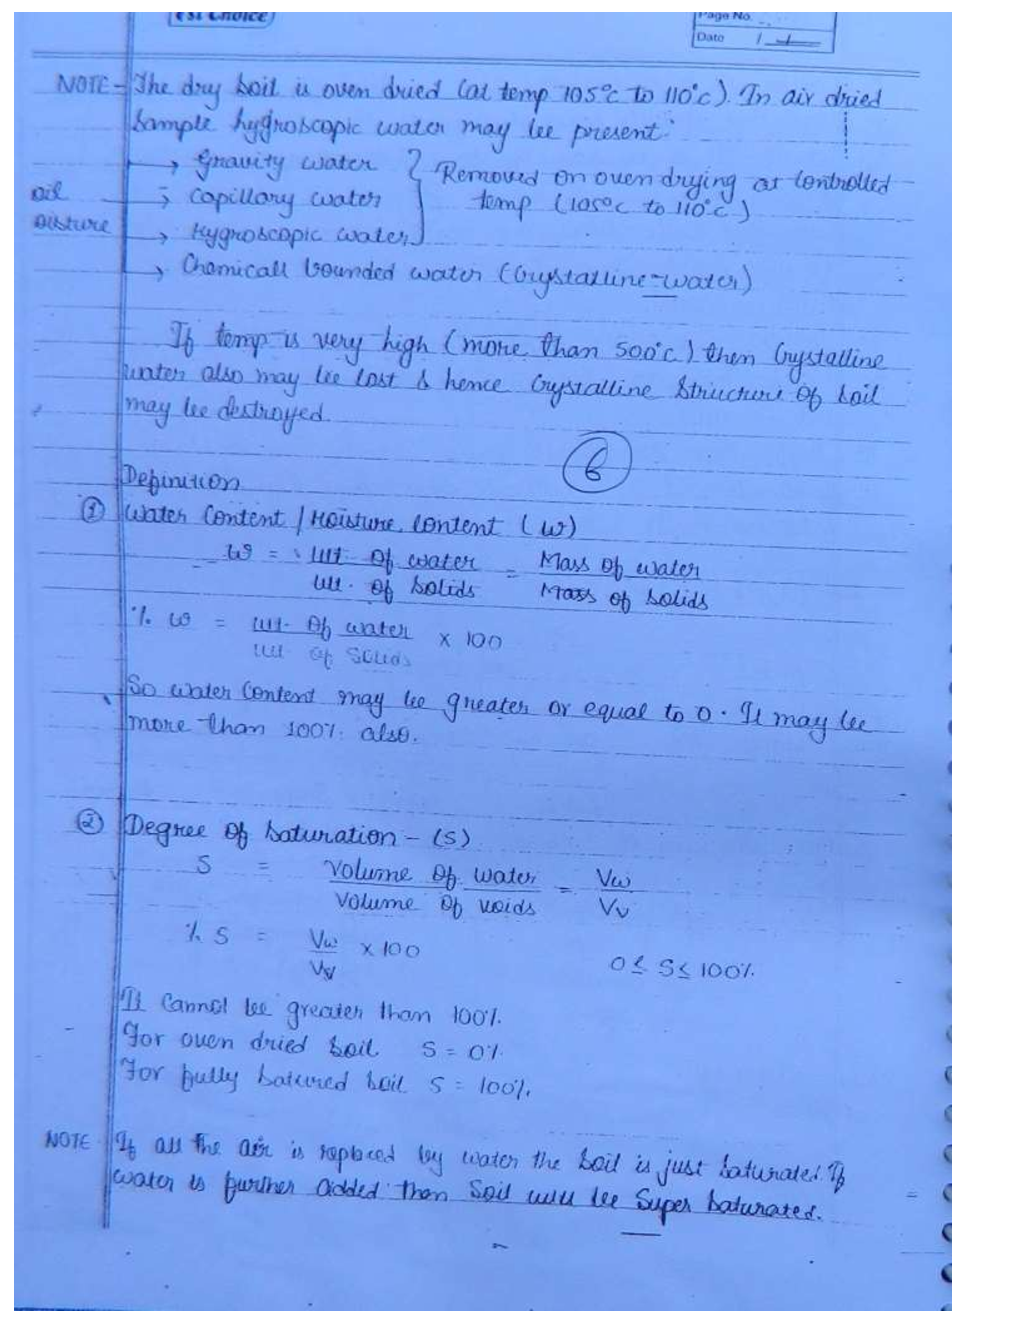 Est Choice
Page No.
Date / /
NOTE - The dry soil is oven dried (at temp 105°c to 110°c). In air dried
sample hygroscopic water may be present.
→ Gravity water
→ Capillary water
→ Hygroscopic water
Removed on oven drying at controlled
temp (105°c to 110°c)
oil
oisture
→ Chemicall bounded water (Crystalline-water)
If temp is very high (more than 500°c) then Crystalline
water also may be lost & hence Crystalline Structure of soil
may be destroyed.
6
Definition
① Water Content / Moisture Content (w)
w = wt. of water / wt. of solids = Mass of water / Mass of solids
% w = wt. of water / wt of solids × 100
So water Content may be greater or equal to 0. It may be
more than 100% also.
② Degree of saturation - (S)
S = Volume of water / Volume of voids = Vw / Vv
% S = Vw / Vv × 100
0 ≤ S ≤ 100%
It Cannot be greater than 100%.
For oven dried soil S = 0%
For fully satured soil S = 100%.
NOTE If all the air is replaced by water the soil is just saturated. If
water is further added then Soil will be Super saturated.